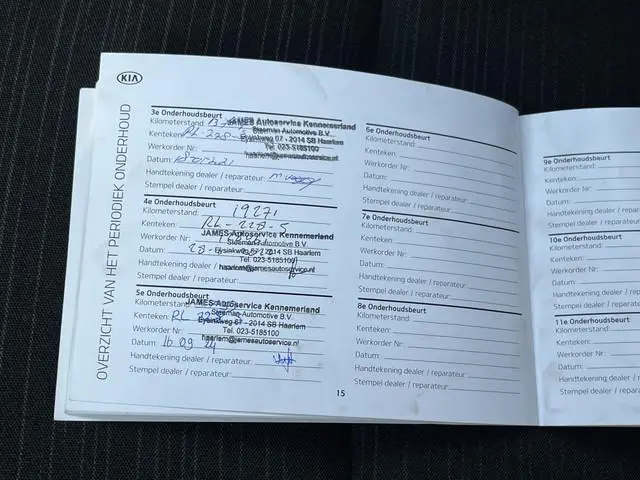 KIA
OVERZICHT VAN HET PERIODIEK ONDERHOUD
3e Onderhoudsbeurt
Kilometerstand:
JAMES Autoservice Kennemerland
Steeman Automotive B.V.
Kenteken: RL-228-S
Eysinkweg 67 - 2014 SB Haarlem
Werkorder Nr.
Tel. 023-5185100
haarlem@jamesautoservice.nl
Datum:
Handtekening dealer / reparateur:
Stempel dealer / reparateur:
4e Onderhoudsbeurt
Kilometerstand: 19271
Kenteken: RL-228-S
JAMES Autoservice Kennemerland
Steeman Automotive B.V.
Werkorder Nr.
Eysinkweg 67 - 2014 SB Haarlem
Datum:
Tel. 023-5185100
Handtekening dealer / haarlem@jamesautoservice.nl
Stempel dealer / reparateur:
5e Onderhoudsbeurt
JAMES Autoservice Kennemerland
Kilometerstand
Steeman Automotive B.V.
Kenteken: RL
Eysinkweg 67 - 2014 SB Haarlem
Werkorder Nr.
Tel. 023-5185100
haarlem@jamesautoservice.nl
Datum: 16 09
Handtekening dealer / reparateur:
Stempel dealer / reparateur:
6e Onderhoudsbeurt
Kilometerstand:
Kenteken:
Werkorder Nr.
Datum:
Handtekening dealer / reparateur:
Stempel dealer / reparateur:
7e Onderhoudsbeurt
Kilometerstand:
Kenteken:
Werkorder Nr.
Datum:
Handtekening dealer / reparateur:
Stempel dealer / reparateur:
8e Onderhoudsbeurt
Kilometerstand:
Kenteken:
Werkorder Nr.
Datum:
Handtekening dealer / reparateur:
Stempel dealer / reparateur:
15
9e Onderhoudsbeurt
Kilometerstand:
Kenteken:
Werkorder Nr.
Datum:
Handtekening dealer
Stempel dealer / repara
10e Onderhoudsbeurt
Kilometerstand:
Kenteken:
Werkorder Nr.
Datum:
Handtekening dealer
Stempel dealer / repar
11e Onderhoudsbeurt
Kilometerstand:
Kenteken:
Werkorder Nr.
Datum:
Handtekening dealer /
Stempel dealer / repar